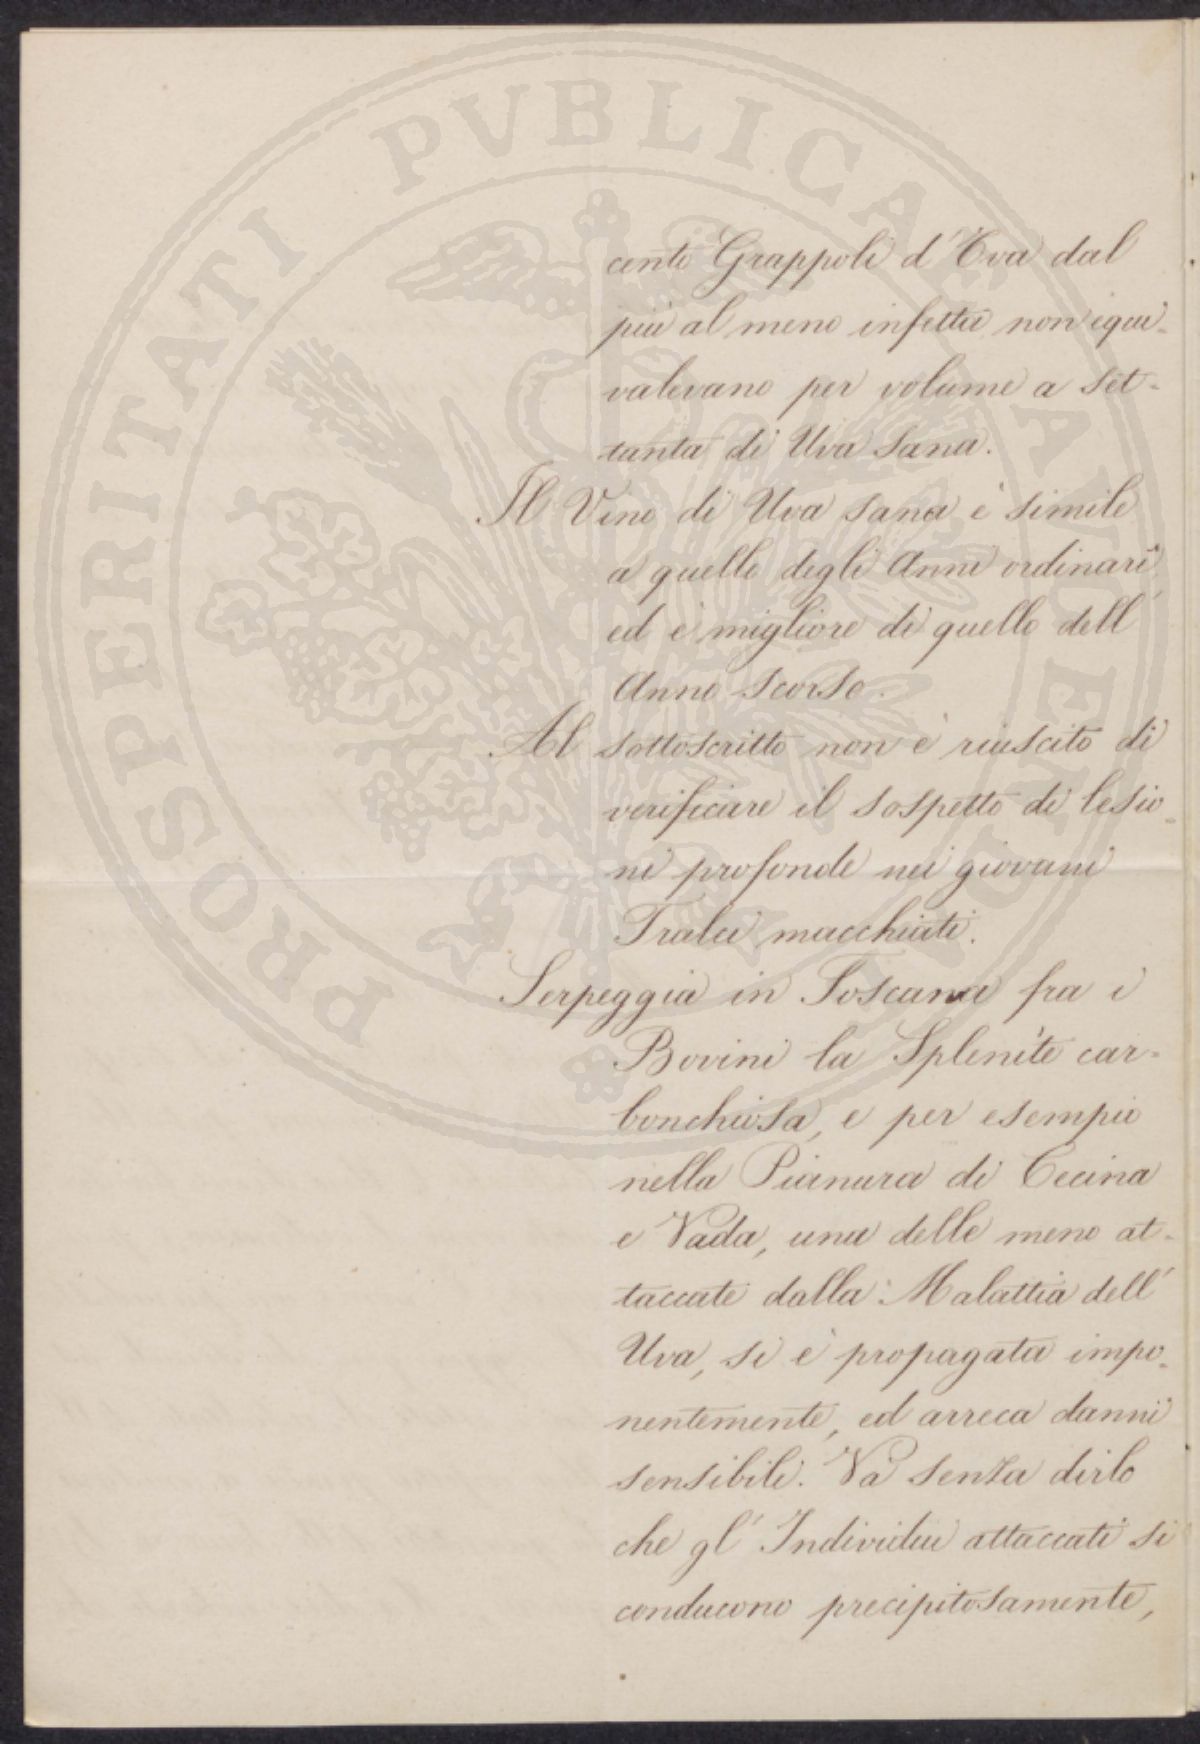 PROSPERITATI PVBLICAE AVGENDAE
cento Grappoli d'Uva dal
più al meno infetta, non equi-
valevano per volume a Set-
tanta di Uva Sana.
Il Vino di Uva Sana è simile
a quello degli Anni ordinari,
ed è migliore di quello dell'
Anno Scorso.
Al sottoscritto non è riuscito di
verificare il sospetto di lesio-
ni profonde nei giovani
Tralci macchiati.
Serpeggia in Toscana fra i
Bovini la Splenite car-
bonchiosa, e per esempio
nella Pianura di Cecina
e Vada, una delle meno at-
taccate dalla Malattia dell'
Uva, si è propagata impo-
nentemente, ed arreca danni
sensibili. Va senza dirlo
che gl'Individui attaccati si
conducono precipitosamente,